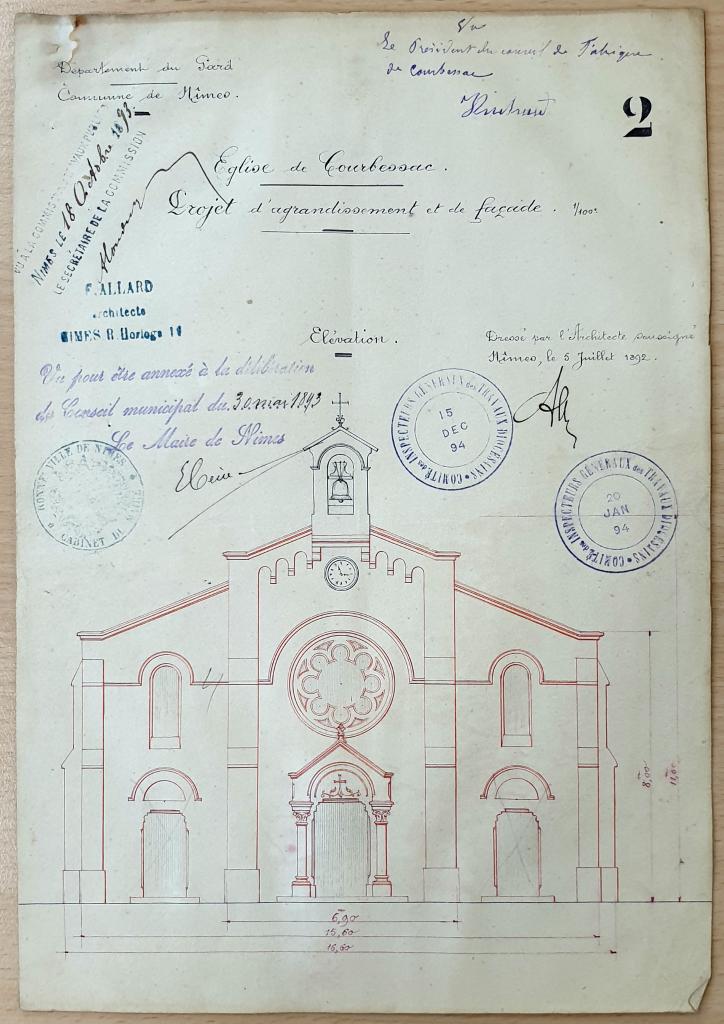 Vu
Le Président du conseil de Fabrique
de Courbessac
Département du Gard
Commune de Nîmes.
2
VU A LA COMMISSION
NIMES LE 18 Octobre 1893.
LE SECRÉTAIRE DE LA COMMISSION
Eglise de Courbessac.
Projet d'agrandissement et de façade. 1/100e
F. ALLARD
Architecte
NIMES R. Horloge
Elévation.
Dressé par l'Architecte soussigné
Nîmes, le 5 Juillet 1892.
Vu pour être annexé à la délibération
du Conseil municipal du 30 mai 1893
Le Maire de Nîmes
COMITÉ des INSPECTEURS GÉNÉRAUX des TRAVAUX DIOCÉSAINS
15
DEC
94
VILLE DE NIMES
CABINET DU MAIRE
COMITÉ des INSPECTEURS GÉNÉRAUX des TRAVAUX DIOCÉSAINS
20
JAN
94
8,00
6,90
15,60
16,60